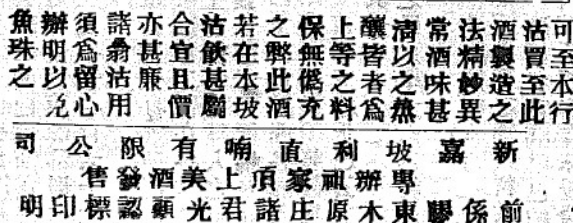 可至本行
沽買至此
酒製造之
法精妙異
常酒味甚
清以之蒸
釀皆者為
上等之料
保無偽充
之弊此酒
若在本坡
沽飲甚屬
合宜且價
亦甚廉
諸翁沽用
須為留心
辦明以免
魚珠之
新嘉坡利直喃有限公司
專辦祖家頂上美酒發售
前係膠東木原庄諸君光顧認標印明